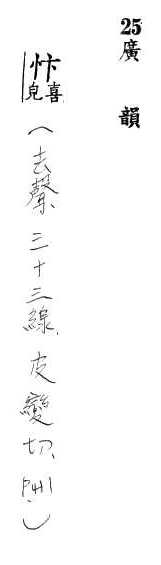 25廣韻
忭喜皃(去聲、三十三線、皮變切、)